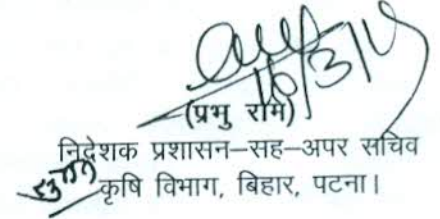 16/3/10
(प्रभु राम)
निदेशक प्रशासन–सह–अपर सचिव
कृषि विभाग, बिहार, पटना।